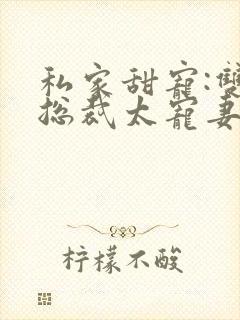 私家甜寵:雙
總裁太寵妻
柠檬不酸